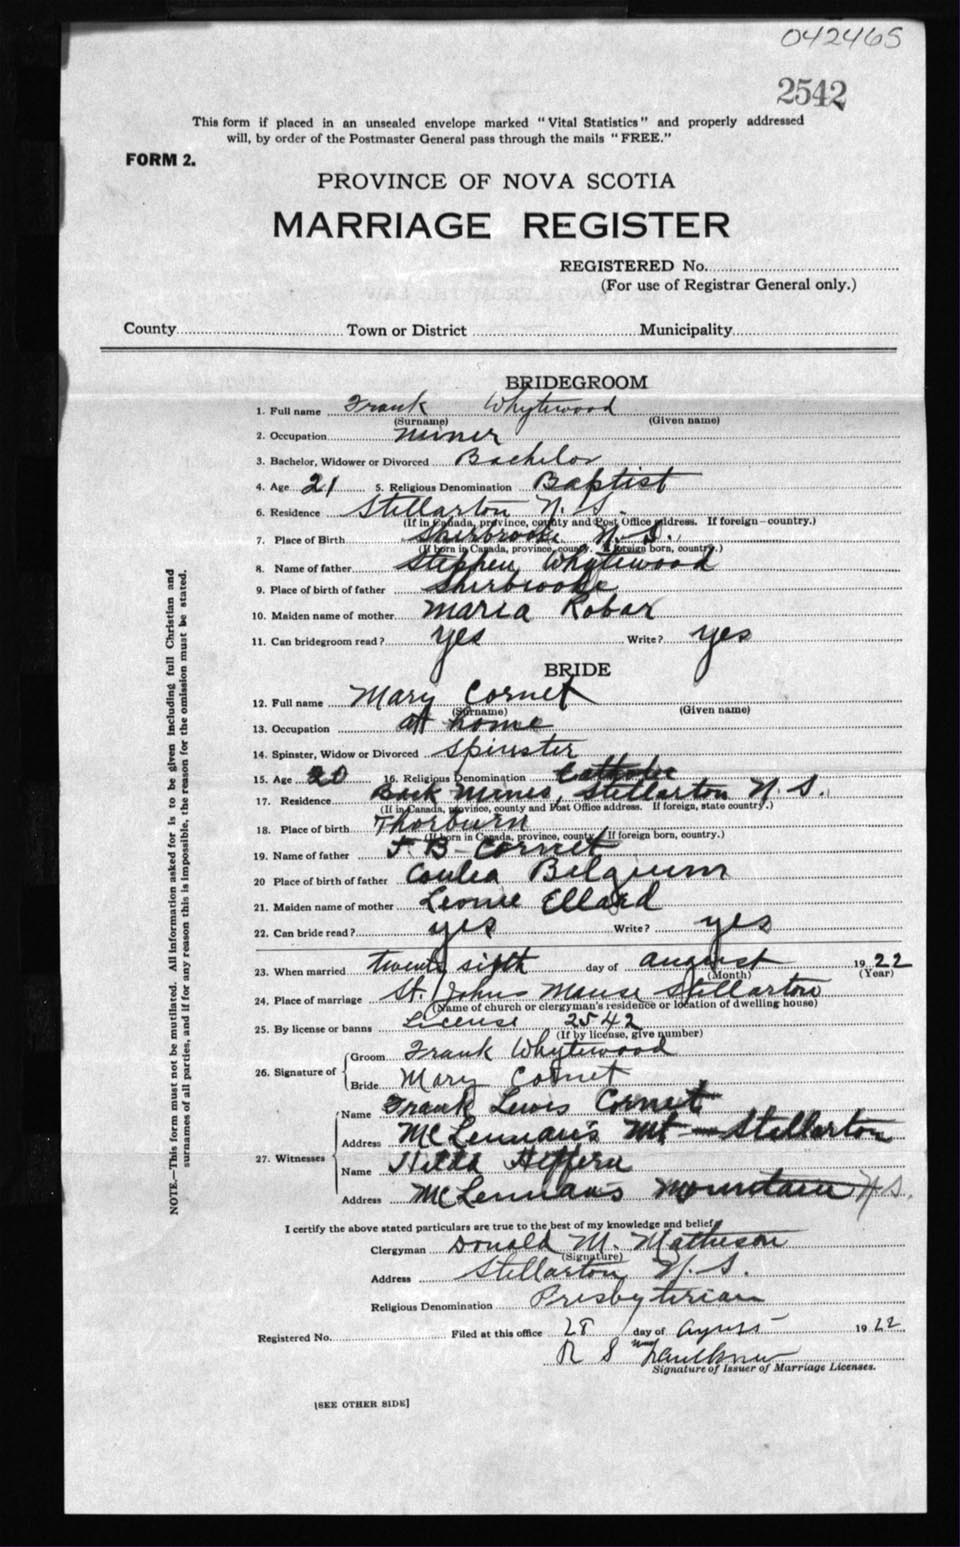 042465
2542
This form if placed in an unsealed envelope marked "Vital Statistics" and properly addressed
will, by order of the Postmaster General pass through the mails "FREE."
FORM 2.
PROVINCE OF NOVA SCOTIA
MARRIAGE REGISTER
REGISTERED No.
(For use of Registrar General only.)
County Town or District Municipality
BRIDEGROOM
1. Full name Frank Whytewood
(Surname) (Given name)
2. Occupation miner
3. Bachelor, Widower or Divorced Bachelor
4. Age 21 5. Religious Denomination Baptist
6. Residence Stellarton N. S.
(If in Canada, province, county and Post Office address. If foreign—country.)
7. Place of Birth Sherbrooke N. S.
(If born in Canada, province, county. If foreign born, country.)
8. Name of father Stephen Whytewood
9. Place of birth of father Sherbrooke
10. Maiden name of mother Maria Robar
11. Can bridegroom read? yes Write? yes
BRIDE
12. Full name Mary Cornet
(Surname) (Given name)
13. Occupation at home
14. Spinster, Widow or Divorced spinster
15. Age 20 16. Religious Denomination Catholic
17. Residence Mines, Stellarton N. S.
(If in Canada, province, county and Post Office address. If foreign, state country.)
18. Place of birth Thorburn
(If born in Canada, province, county. If foreign born, country.)
19. Name of father J. B Cornet
20 Place of birth of father Belgium
21. Maiden name of mother Leonie Ellard
22. Can bride read? yes Write? yes
23. When married twenty sixth day of august 1922
(Month) (Year)
24. Place of marriage St. Johns Manse Stellarton
(Name of church or clergyman's residence or location of dwelling house)
25. By license or banns License 2542
(If by license, give number)
26. Signature of Groom Frank Whytewood
Bride Mary Cornet
27. Witnesses Name Frank Lewis Cornet
Address McLennan's Mt — Stellarton
Name Hilda
Address McLennan's Mountain N S.
NOTE.—This form must not be mutilated. All information asked for is to be given including full Christian and
surnames of all parties, and if for any reason this is impossible, the reason for the omission must be stated.
I certify the above stated particulars are true to the best of my knowledge and belief.
Clergyman Donald M. Matheson
(Signature)
Address Stellarton N. S.
Religious Denomination Presbyterian
Registered No. Filed at this office 28 day of August 1922
R S Faulkner
Signature of Issuer of Marriage Licenses.
[SEE OTHER SIDE]